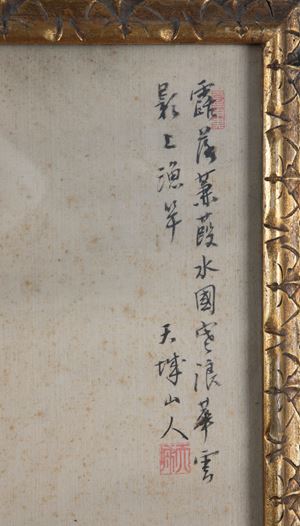 露落蒹葭水國寒浪華雲
影上漁竿
天城山人